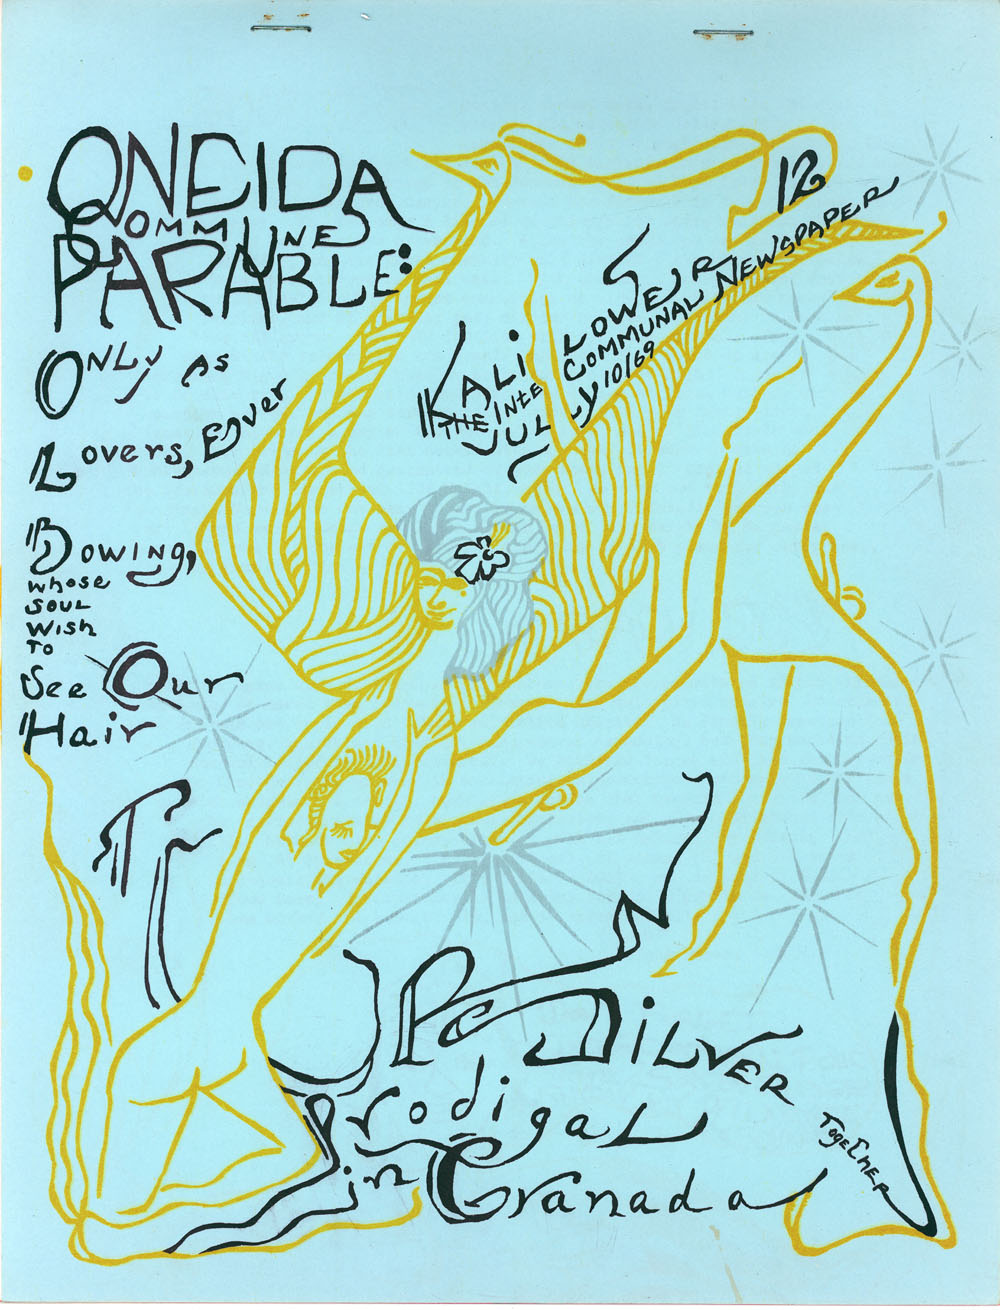 ONEIDA
COMMUNE
PARABLE:
ONLY AS
LOVERS, EVER
BOWING,
WHOSE
SOUL
WISH
TO
SEE OUR
HAIR
KALIFLOWER 12
THE INTERCOMMUNAL NEWSPAPER
JULY 10/69
TURN
UP SILVER
PRODIGAL
in GRANADA
TOGETHER